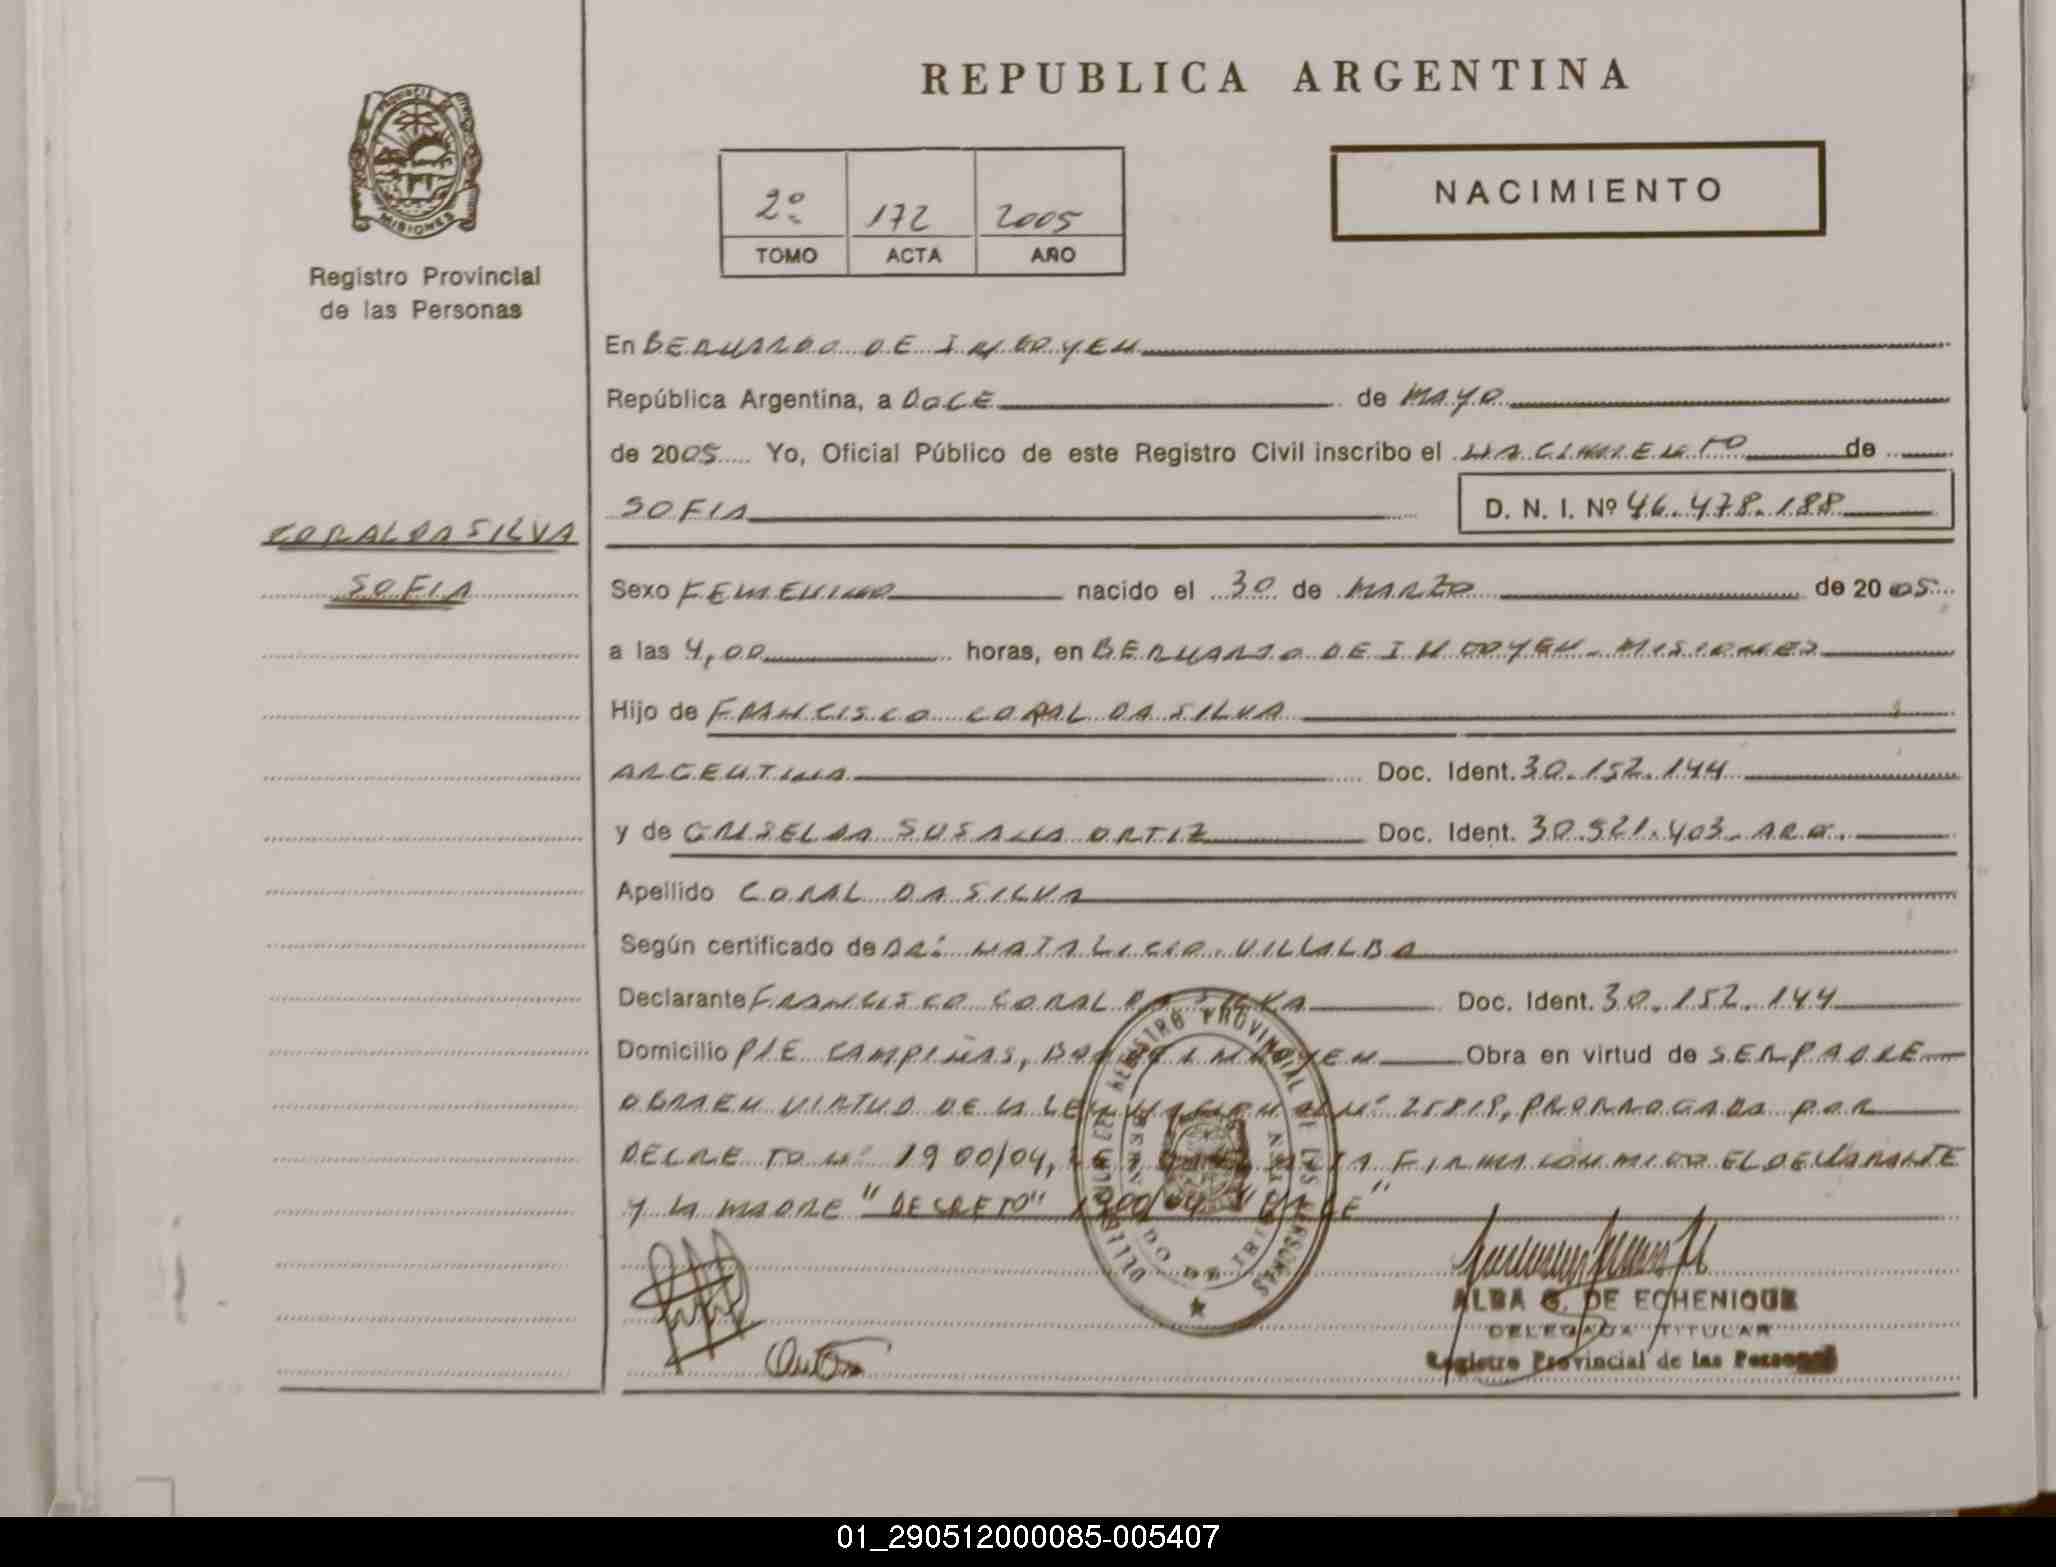 REPUBLICA ARGENTINA
PROVINCIA DE
MISIONES
Registro Provincial
de las Personas
NACIMIENTO
2º 172 2005
TOMO ACTA AÑO
En BERNARDO DE IRIGOYEN
República Argentina, a DOCE de MAYO
de 2005 Yo, Oficial Público de este Registro Civil inscribo el NACIMIENTO de
SOFIA D. N. I. Nº 46.478.188
CORAL DA SILVA
SOFIA
Sexo FEMENINO nacido el 30 de MARZO de 2005
a las 4,00 horas, en BERNARDO DE IRIGOYEN - MISIONES
Hijo de FRANCISCO CORAL DA SILVA
ARGENTINA Doc. Ident. 30.152.144
y de GRISELDA SUSANA ORTIZ Doc. Ident. 30.521.403 - ARG.
Apellido CORAL DA SILVA
Según certificado de DR: NATALICIO VILLALBA
Declarante FRANCISCO CORAL DA SILVA Doc. Ident. 30.152.144
Domicilio PJE CAMPIÑAS, Obra en virtud de SER PADRE
OBRA EN VIRTUD DE LA LEY NACIONAL Nº 25819, PRORROGADA POR
DECRETO Nº 1900/04, FIRMA CONMIGO EL DECLARANTE
Y LA MADRE "DECRETO" 1900/04 "VALE"
REGISTRO PROVINCIAL DE LAS PERSONAS
ALBA G. DE ECHENIQUE
DELEGADA TITULAR
Registro Provincial de las Personas
01_290512000085-005407